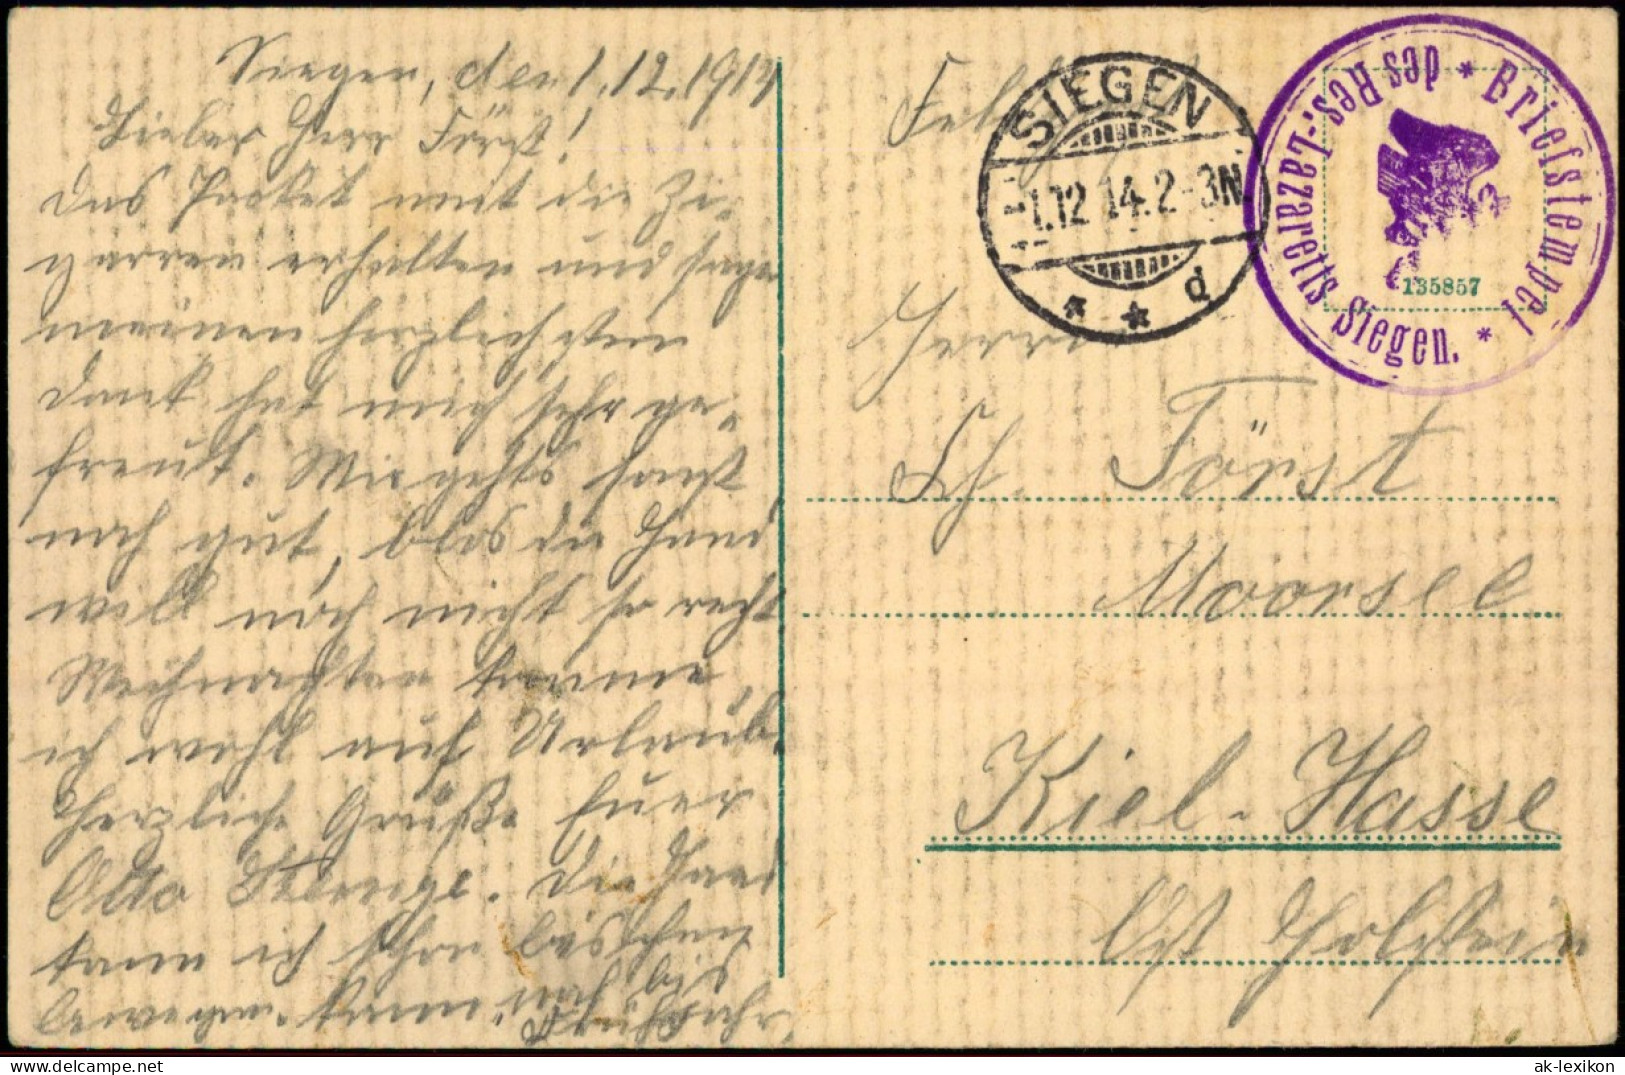 Siegen, den 1.12.1914
Lieber Herr Först!
Das Packet mit die Zi-
garren erhalten und sage
meinen herzlichsten
Dank hat mich sehr ge-
freut. Mir gehts sonst
noch gut, blos die Hand
will noch nicht so recht
Weihnachten komme
ich wohl auf Urlaub.
Herzliche Grüße Euer
Otto Stenge. Die Hand
kann ich schon bischen
bewegen. kann noch bis
Frühjahr
SIEGEN
1.12.14.2-3N.
* * d
Briefstempel * des Res.-Lazaretts Siegen. *
135857
Herrn
Först
Moorsee
Kiel-Hasse
Ost Holstein
ak-lexikon